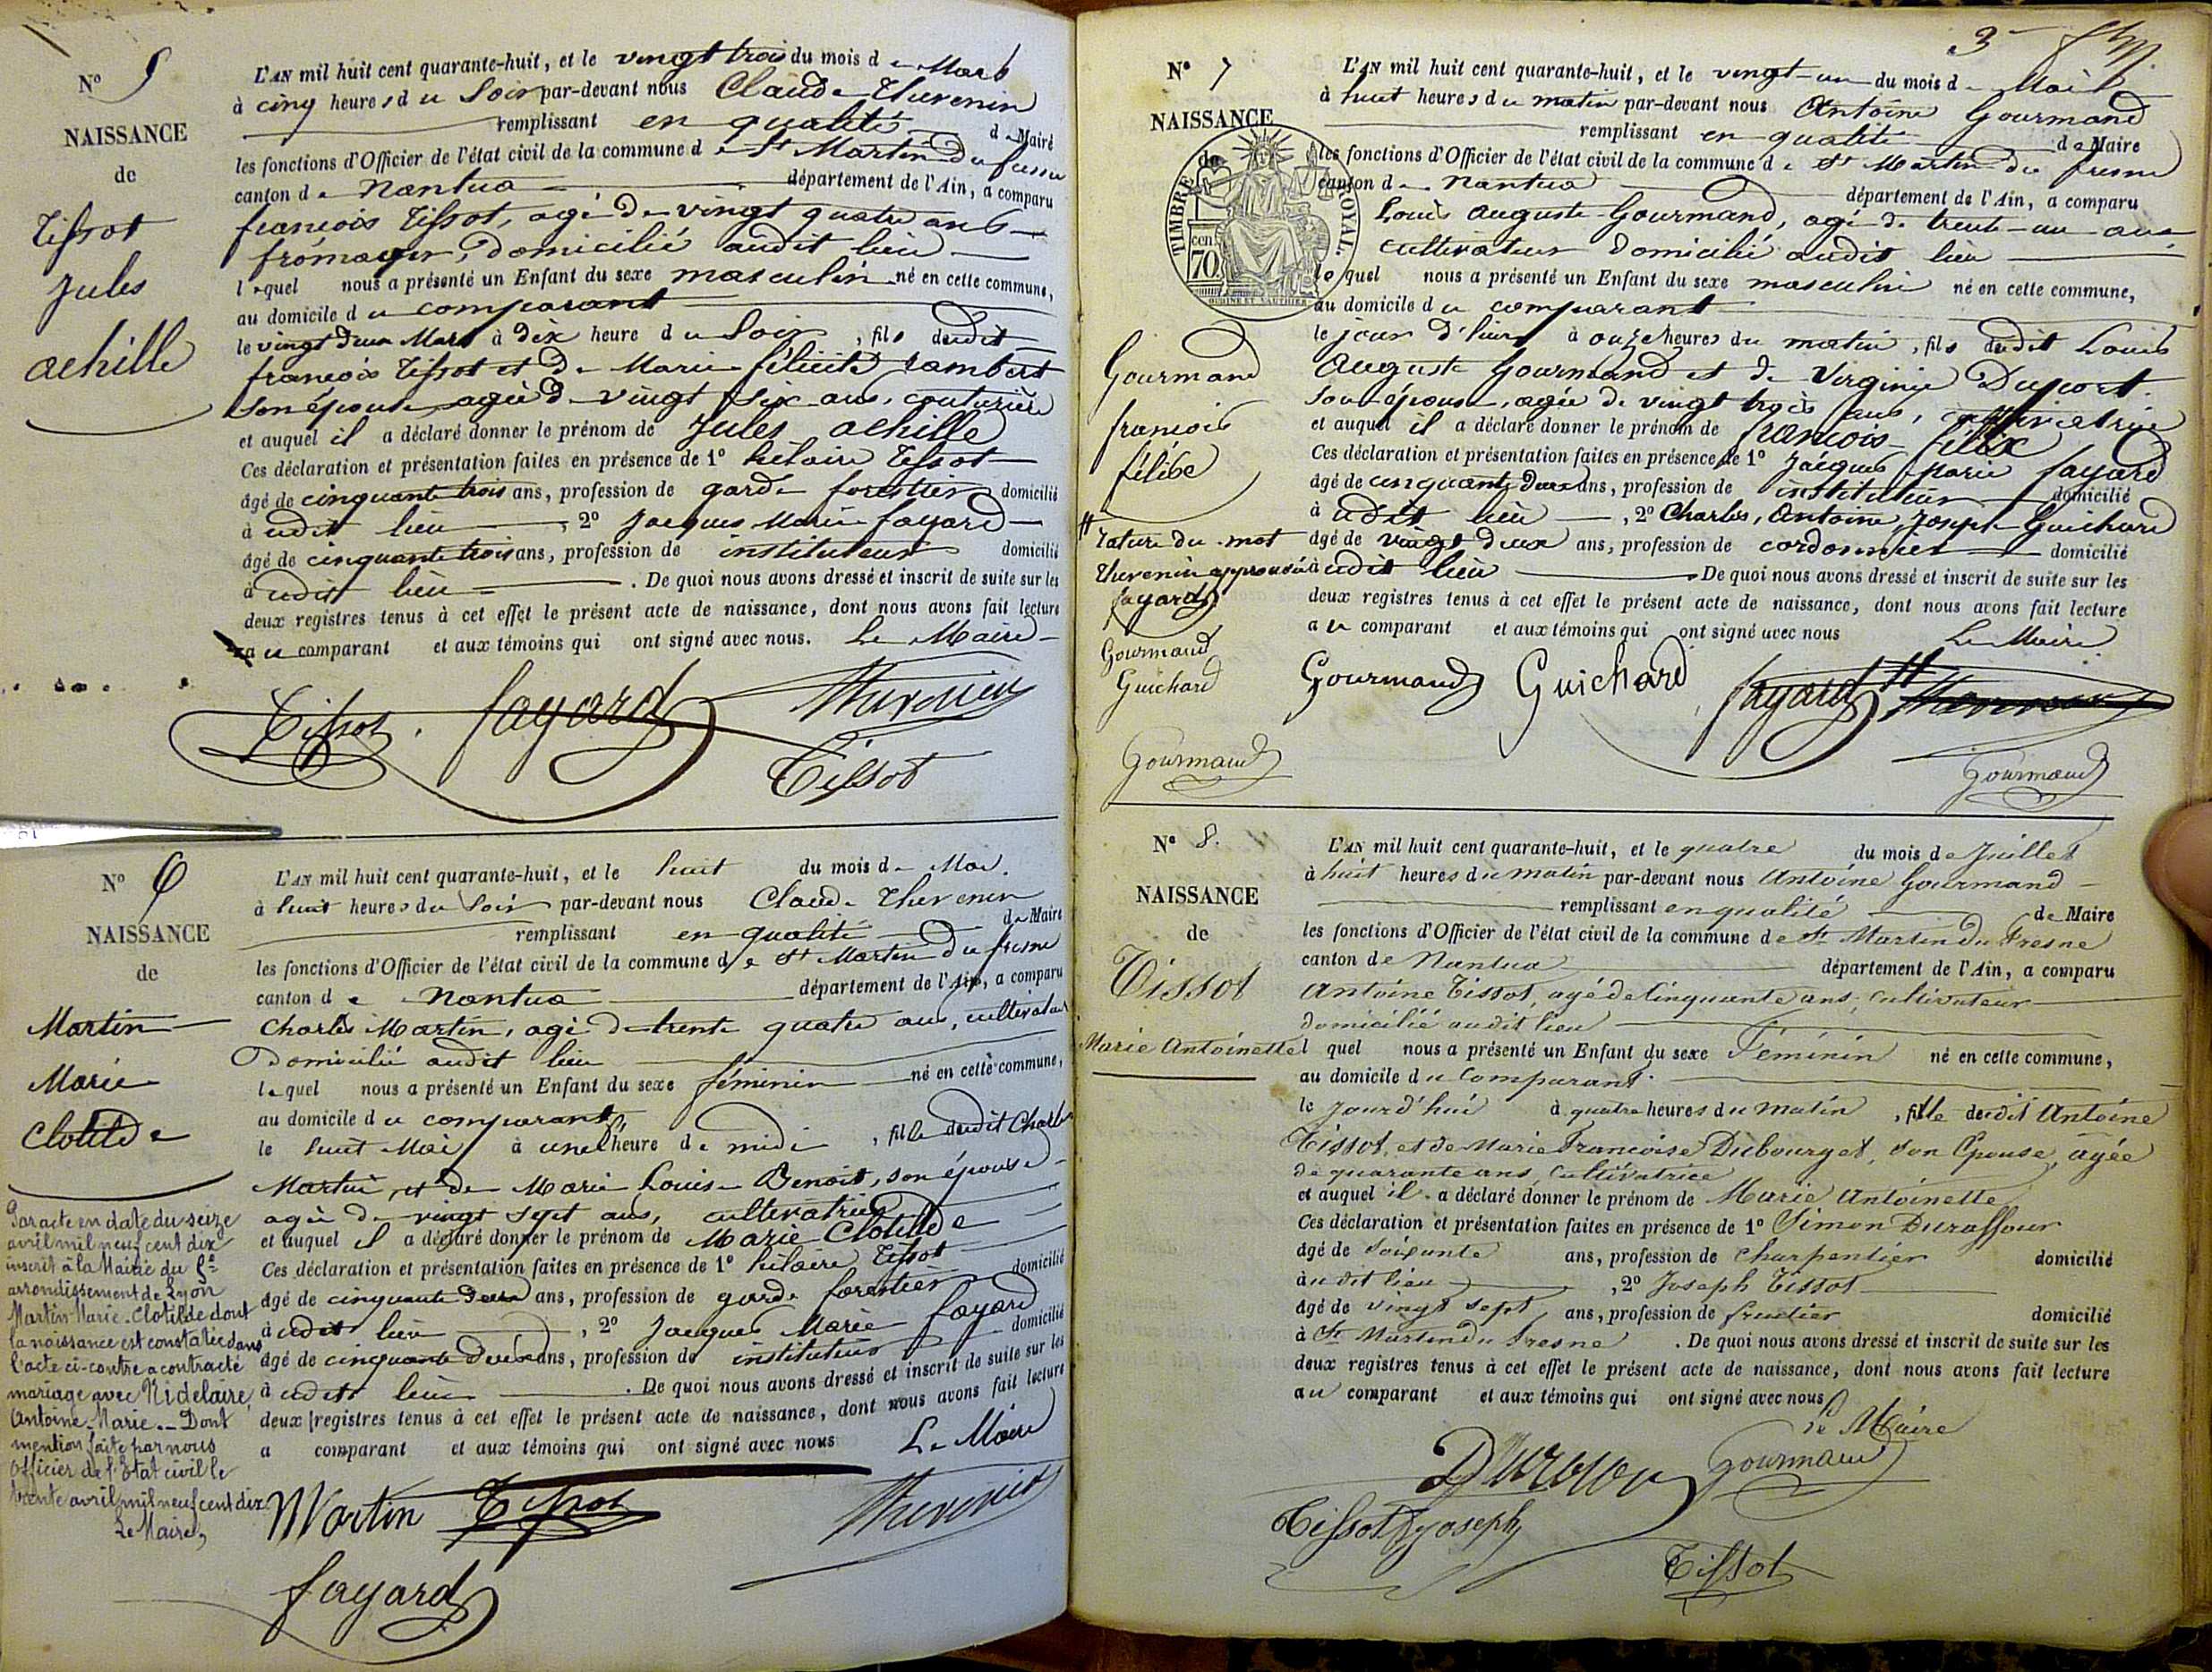 N° 5
NAISSANCE
de
Tissot
Jules
achille
L'AN mil huit cent quarante-huit, et le vingt trois du mois de Mars
à cinq heures du Soir par-devant nous Claude Thevenin
remplissant en qualité de Maire
les fonctions d'Officier de l'état civil de la commune de St Martin du fresne
canton de Nantua département de l'Ain, a comparu
françois Tissot, agé de vingt quatre ans
fromager, Domicilié audit lieu
lequel nous a présenté un Enfant du sexe masculin né en cette commune,
au domicile du comparant
le vingt deux Mars à dix heure du Soir, fils dudit
françois Tissot et de Marie félicité Jambert
son épouse agée de vingt six ans, couturière
et auquel il a déclaré donner le prénom de Jules achille
Ces déclaration et présentation faites en présence de 1° hilaire Tissot
âgé de cinquante trois ans, profession de garde forestier domicilié
à udit lieu, 2° Jacques Marie fayard
âgé de cinquante trois ans, profession de instituteur domicilié
à udit lieu. De quoi nous avons dressé et inscrit de suite sur les
deux registres tenus à cet effet le présent acte de naissance, dont nous avons fait lecture
au comparant et aux témoins qui ont signé avec nous. Le Maire
Tissot fayard Thevenin
Tissot
N° 6
NAISSANCE
de
Martin
Marie
Clotilde
Par acte en date du seize
avril mil neuf cent dix
inscrit à la Mairie du
arrondissement de Lyon
Martin Marie-Clotilde dont
la naissance est constatée dans
l'acte ci-contre a contracté
mariage avec Nidelaire
Antoine-Marie.- Dont
mention faite par nous
Officier de l'Etat civil le
trente avril mil neuf cent dix
Le Maire,
L'AN mil huit cent quarante-huit, et le huit du mois de Mai
à huit heures du Soir par-devant nous Claude Thevenin
remplissant en qualité de Maire
les fonctions d'Officier de l'état civil de la commune de St Martin du fresne
canton de Nantua département de l'Ain, a comparu
Charles Martin, agé de trente quatre ans, cultivateur
Domicilié audit lieu
lequel nous a présenté un Enfant du sexe féminin né en cette commune,
au domicile du comparant
le huit Mai à une heure de midi, fille dudit Charles
Martin, et de Marie Louise Benoit, son épouse
agée de vingt sept ans, cultivatrice
et auquel il a déclaré donner le prénom de Marie Clotilde
Ces déclaration et présentation faites en présence de 1° hilaire Tissot
âgé de cinquante deux ans, profession de garde forestier domicilié
à udit lieu, 2° Jacques Marie fayard
âgé de cinquante deux ans, profession de instituteur domicilié
à udit lieu. De quoi nous avons dressé et inscrit de suite sur les
deux registres tenus à cet effet le présent acte de naissance, dont nous avons fait lecture
a comparant et aux témoins qui ont signé avec nous Le Maire
Martin Tissot Thevenin
fayard
3
N° 7
NAISSANCE
de
TIMBRE ROYAL.
cen.
70
Gourmand
francois
félix
rature du mot
Thevenin approuvée
fayard
Gourmand
Guichard
Gourmand
L'AN mil huit cent quarante-huit, et le vingt-un du mois de Mai
à huit heures du matin par-devant nous Antoine Gourmand
remplissant en qualité de Maire
les fonctions d'Officier de l'état civil de la commune de St Martin du fresne
canton de Nantua département de l'Ain, a comparu
Louis Auguste Gourmand, agé de trente-un ans
cultivateur Domicilié audit lieu
lequel nous a présenté un Enfant du sexe masculin né en cette commune,
au domicile du comparant
le jour d'hier à onze heures du matin, fils dudit Louis
Auguste Gourmand et de Virginie Duport
son épouse, agée de vingt trois ans, cultivatrice
et auquel il a déclaré donner le prénom de francois félix
Ces déclaration et présentation faites en présence de 1° Jacques Marie fayard
âgé de cinquante deux ans, profession de instituteur domicilié
à udit lieu, 2° Charles, Antoine, Joseph Guichard
âgé de vingt deux ans, profession de cordonnier domicilié
à udit lieu De quoi nous avons dressé et inscrit de suite sur les
deux registres tenus à cet effet le présent acte de naissance, dont nous avons fait lecture
au comparant et aux témoins qui ont signé avec nous Le Maire
Gourmand Guichard fayard
Gourmand
N° 8.
NAISSANCE
de
Tissot
Marie Antoinette
L'AN mil huit cent quarante-huit, et le quatre du mois de Juillet
à huit heures du matin par-devant nous Antoine Gourmand
remplissant en qualité de Maire
les fonctions d'Officier de l'état civil de la commune de St Martin du Fresne
canton de Nantua département de l'Ain, a comparu
Antoine Tissot, agé de Cinquante ans, Cultivateur
domicilié audit lieu
l quel nous a présenté un Enfant du sexe Féminin né en cette commune,
au domicile du Comparant.
le jourd'hui à quatre heures du Matin, fille dudit Antoine
Tissot, et de Marie Francoise Dubourget, son Epouse, agée
de quarante ans, Cultivatrice
et auquel il a déclaré donner le prénom de Marie Antoinette
Ces déclaration et présentation faites en présence de 1° Simon Duraffour
âgé de Soixante ans, profession de Charpentier domicilié
à udit lieu, 2° Joseph Tissot
âgé de vingt sept ans, profession de fruitier domicilié
à St Martin du Fresne. De quoi nous avons dressé et inscrit de suite sur les
deux registres tenus à cet effet le présent acte de naissance, dont nous avons fait lecture
au comparant et aux témoins qui ont signé avec nous
le Maire
Gourmand
Tissot Joseph
Tissot